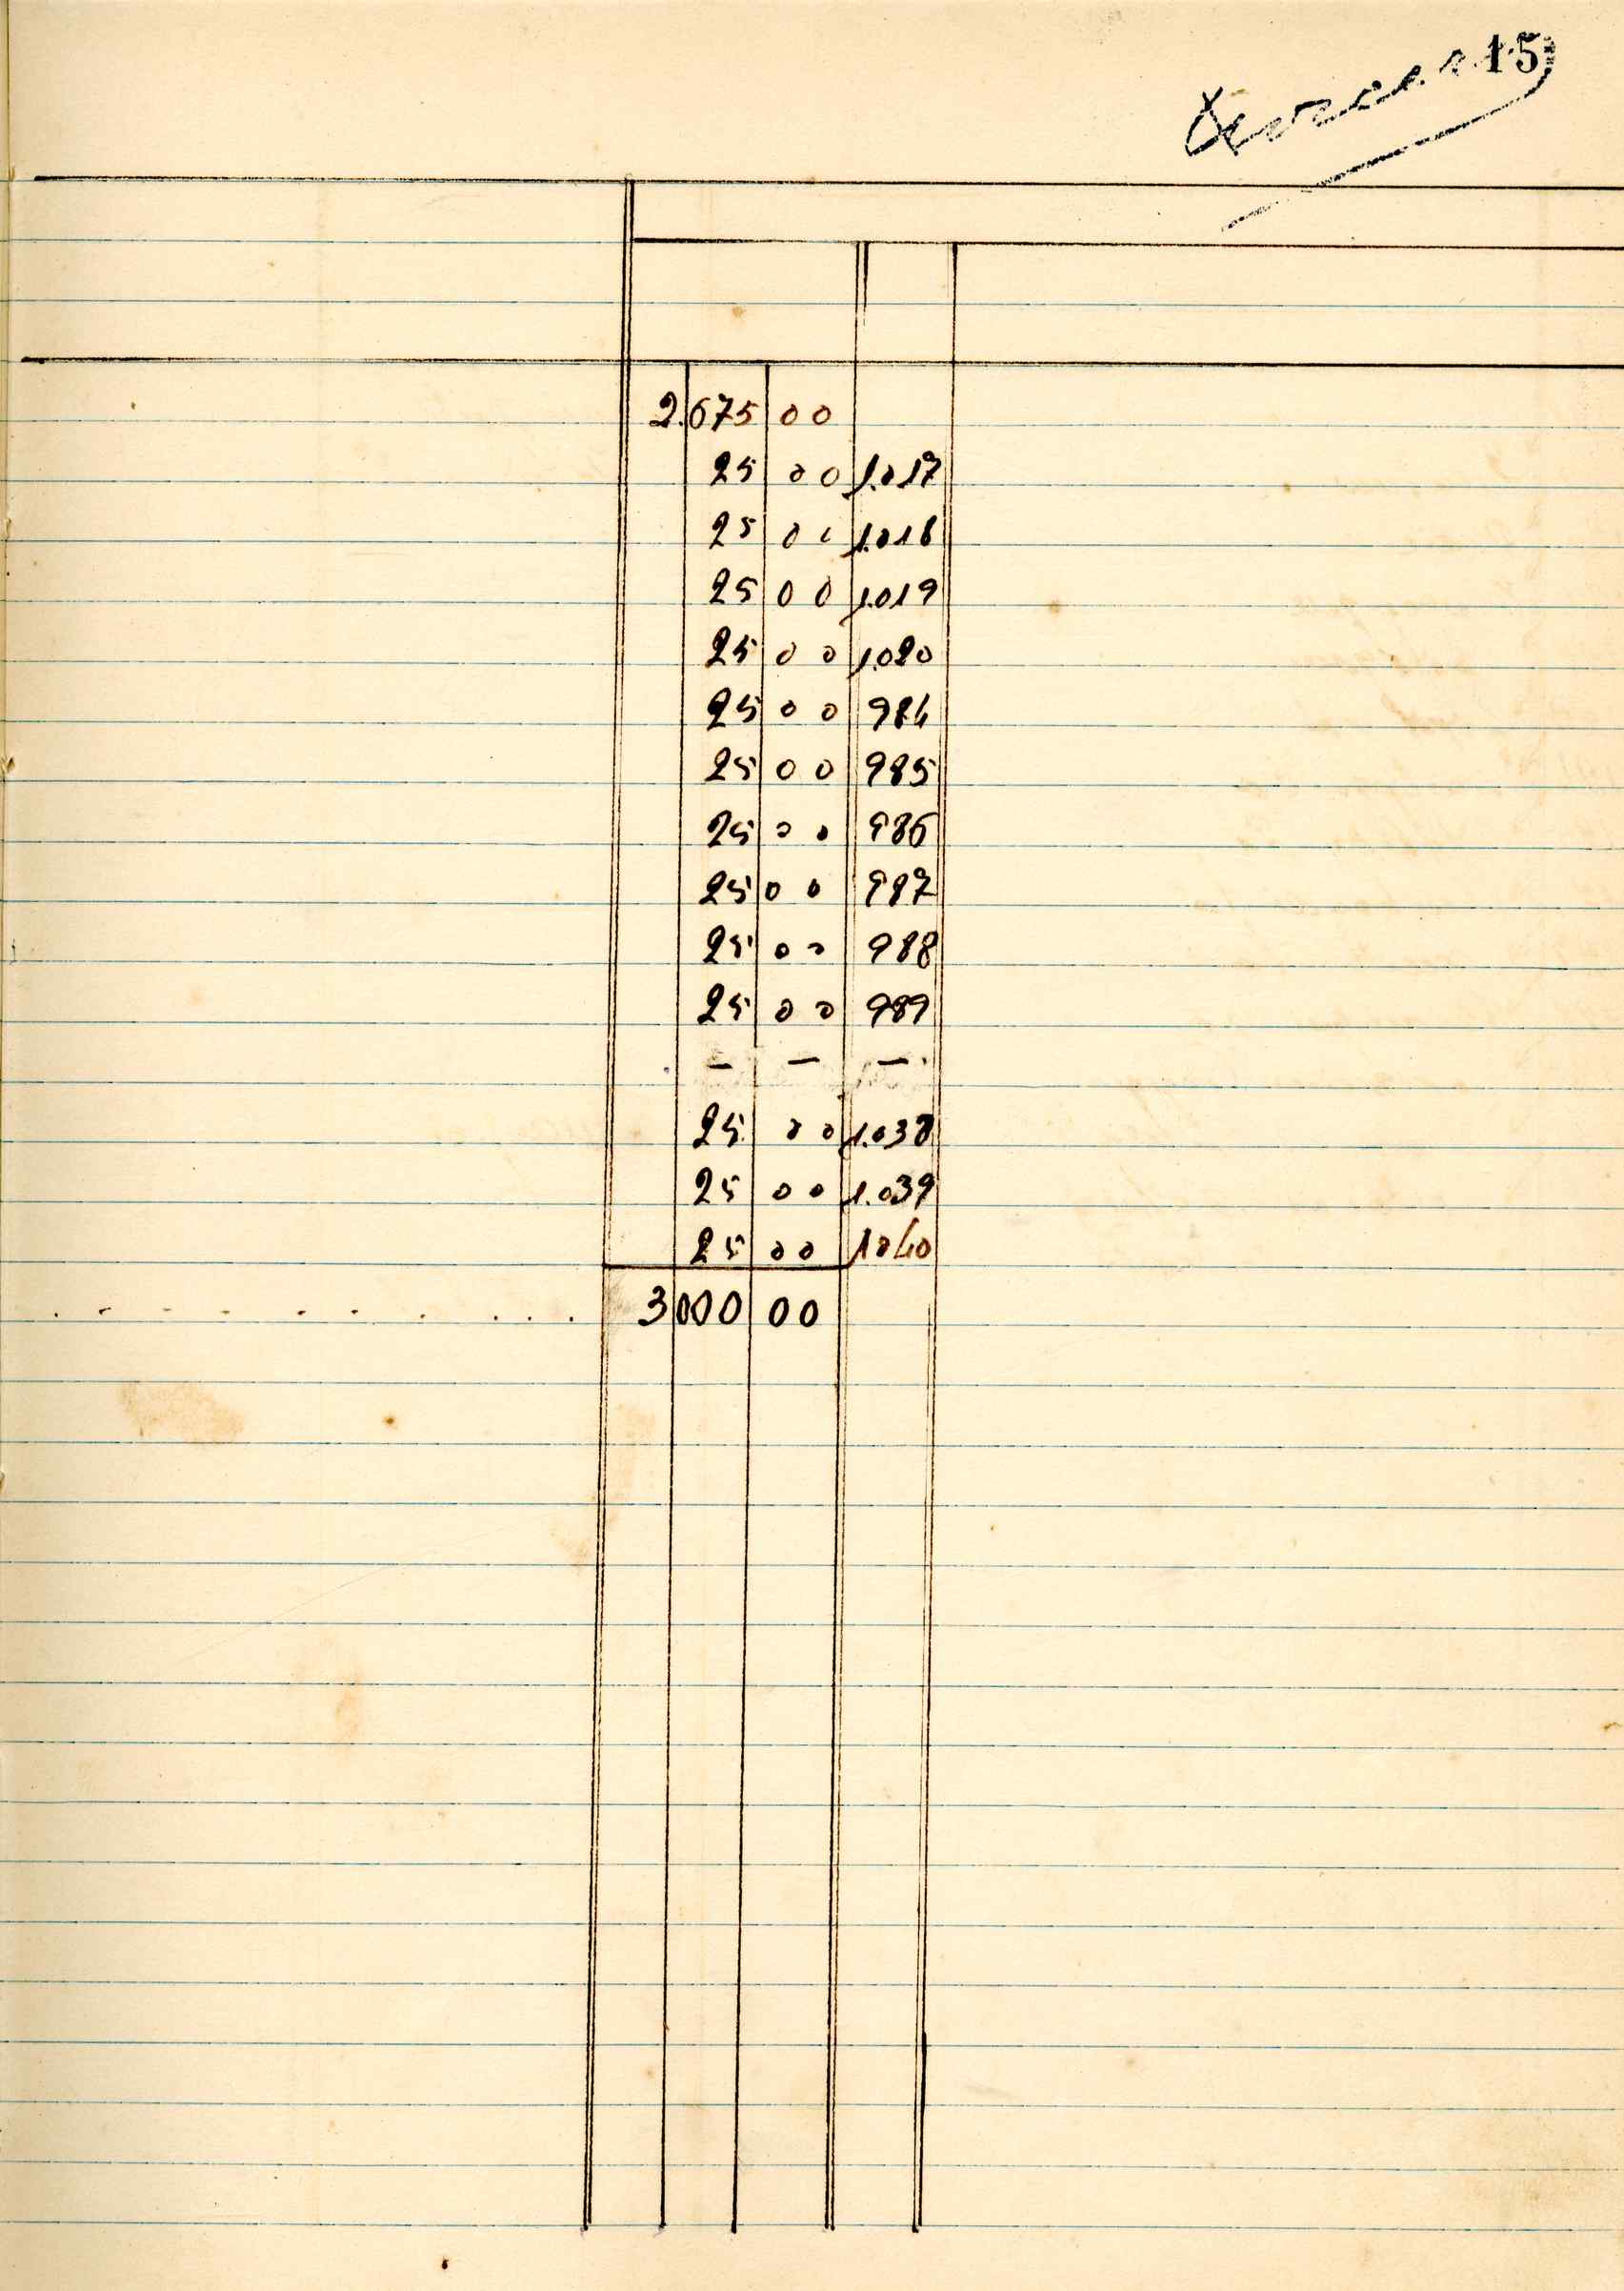 15
2.675 00
25 00 1.017
25 00 1.018
25 00 1.019
25 00 1.020
25 00 984
25 00 985
25 00 986
25 00 987
25 00 988
25 00 989
— — —
25 00 1.038
25 00 1.039
25 00 1040
. . . . . . . . . . . 3000 00